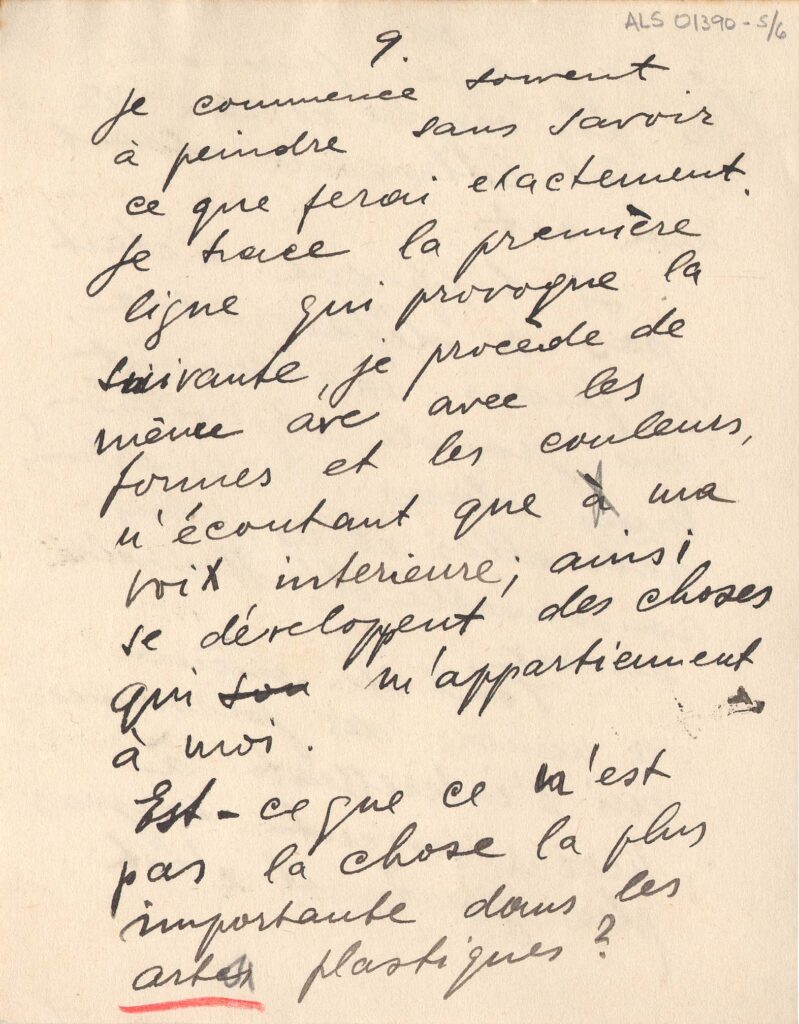 ALS 01390-5/6
9.
Je commence souvent
à peindre sans savoir
ce que ferai exactement.
Je trace la première
ligne qui provoque la
suivante, je procède de
même avc avec les
formes et les couleurs,
n'écoutant que à ma
voix interieure; ainsi
se développent des choses
qui son m'appartiennent
à moi.
Est-ce que ce n'est
pas la chose la plus
importante dans les
arts plastiques?